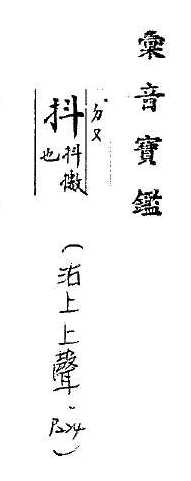 彙音寶鑑
分又
抖抖擻也
（沽上上聲。P224）